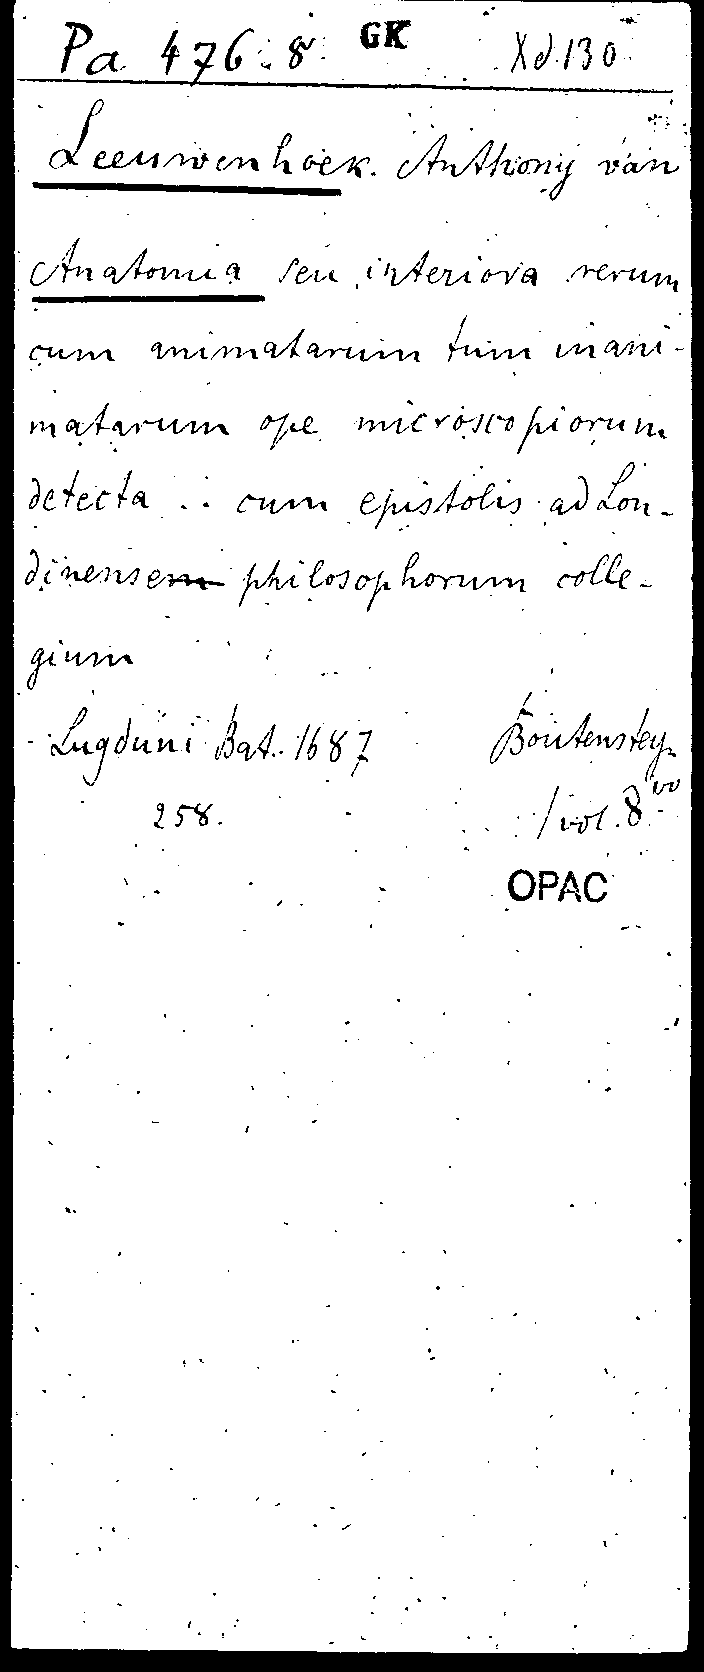 Pa 476.8 GK Xd.130
Leeuwenhoek. Anthony van
Anatomia seu interiora rerum
cum animatarum tum inani-
matarum ope microscopiorum
detecta .. cum epistolis ad Lon-
dinensem philosophorum colle-
gium
Lugduni Bat. 1687 Boutesteyn
258. 1 vol. 8vo
OPAC